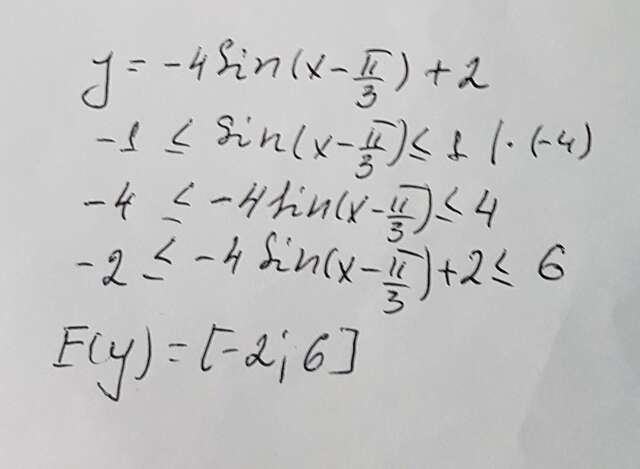 y = -4 sin(x - π/3) + 2
-1 ≤ sin(x - π/3) ≤ 1 | · (-4)
-4 ≤ -4 sin(x - π/3) ≤ 4
-2 ≤ -4 sin(x - π/3) + 2 ≤ 6
E(y) = [-2; 6]